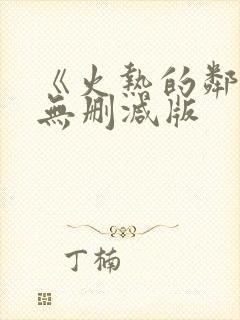 《火熱的鄰
無刪減版
丁楠